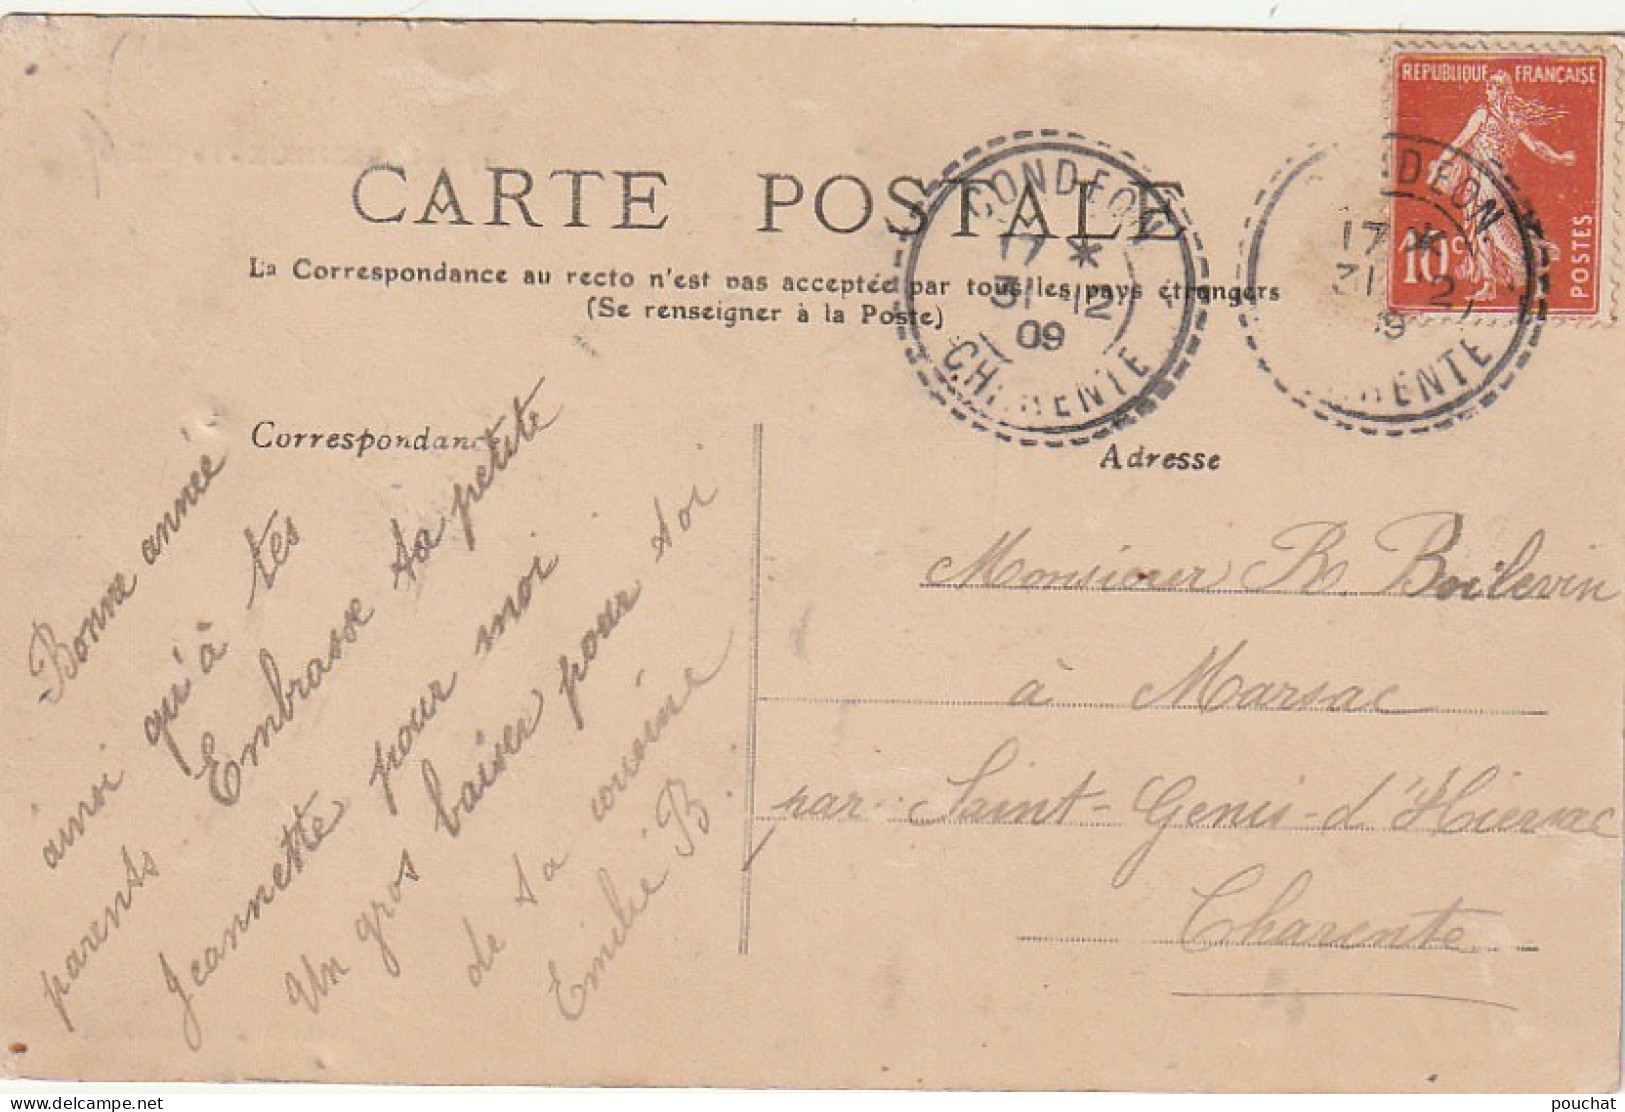 REPUBLIQUE FRANÇAISE
10c
POSTES
CARTE POSTALE
La Correspondance au recto n'est pas acceptée par tous les pays étrangers
(Se renseigner à la Poste)
CONDEON
17 *
31 - 12
09
CHARENTE
DEON
17 *
31 12
09
RENTE
Correspondance
Adresse
Bonne année
ainsi qu'à tes
parents Embrasse ta petite
Jeannette pour moi
Un gros baiser pour toi
de ta cousine
Emilie B.
Monsieur R. Boilevin
à Marsac
par Saint-Genis-d'Hiersac
Charente
pouchat